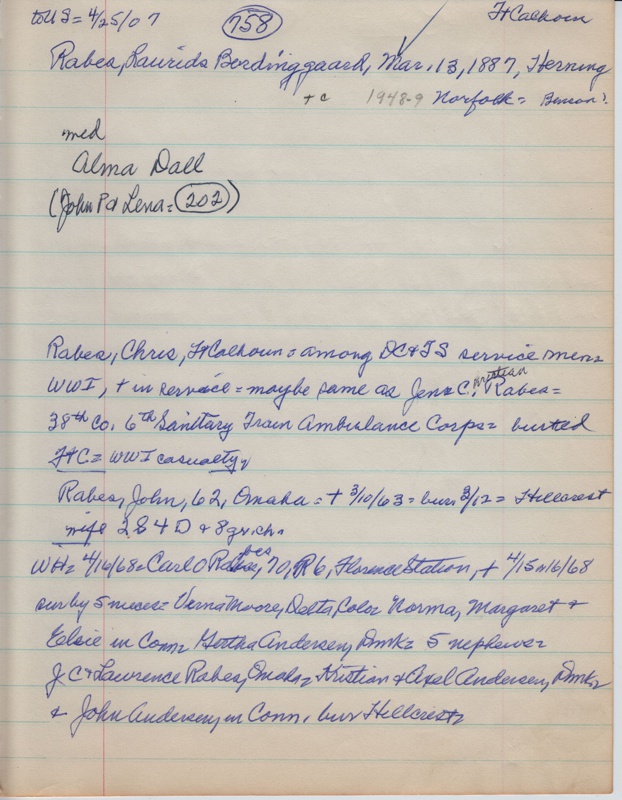 to US = 4/25/07 758 Ft Calhoun
Rabes, Laurids Bordinggaard, Mar. 13, 1887, Herning
+ c 1948-9 Norfolk = Benson?
med
Alma Dall
(John P & Lena = 202)
Rabes, Chris, Ft Calhoun = among DC & TS service men =
WWI, + in service = maybe same as Jens C. Rabes =
ristian
38th Co. 6th Sanitary Train Ambulance Corps = buried
Ft C = WWI casualty.
Rabes, John, 62, Omaha = + 3/10/63 = bur. 3/12 = Hillcrest
wife 2 S 4 D & 8 gr. ch.
WH = 4/16/68 = Carl O Rabes, 70, R 6, Florence Station, + 4/15 or 16/68
sur by 5 nieces = Verna Moore, Delta, Colo Norma, Margaret &
Elsie in Conn = Gertha Andersen, Dmk = 5 nephews =
J C & Lawrence Rabes, Omaha, Kristian & Axel Andersen, Dmk =
& John Andersen, in Conn, bur Hillcrest =